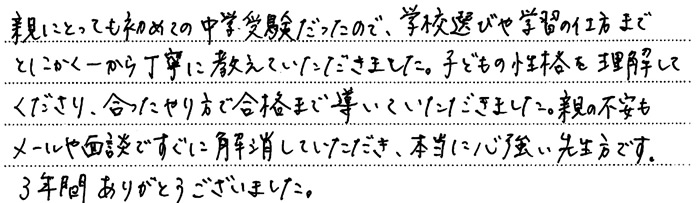 親にとっても初めての中学受験だったので、学校選びや学習の仕方まで
とにかく一から丁寧に教えていただきました。子どもの性格を理解して
くださり、合ったやり方で合格まで導いていただきました。親の不安も
メールや面談ですぐに解消していただき、本当に心強い先生方です。
3年間ありがとうございました。